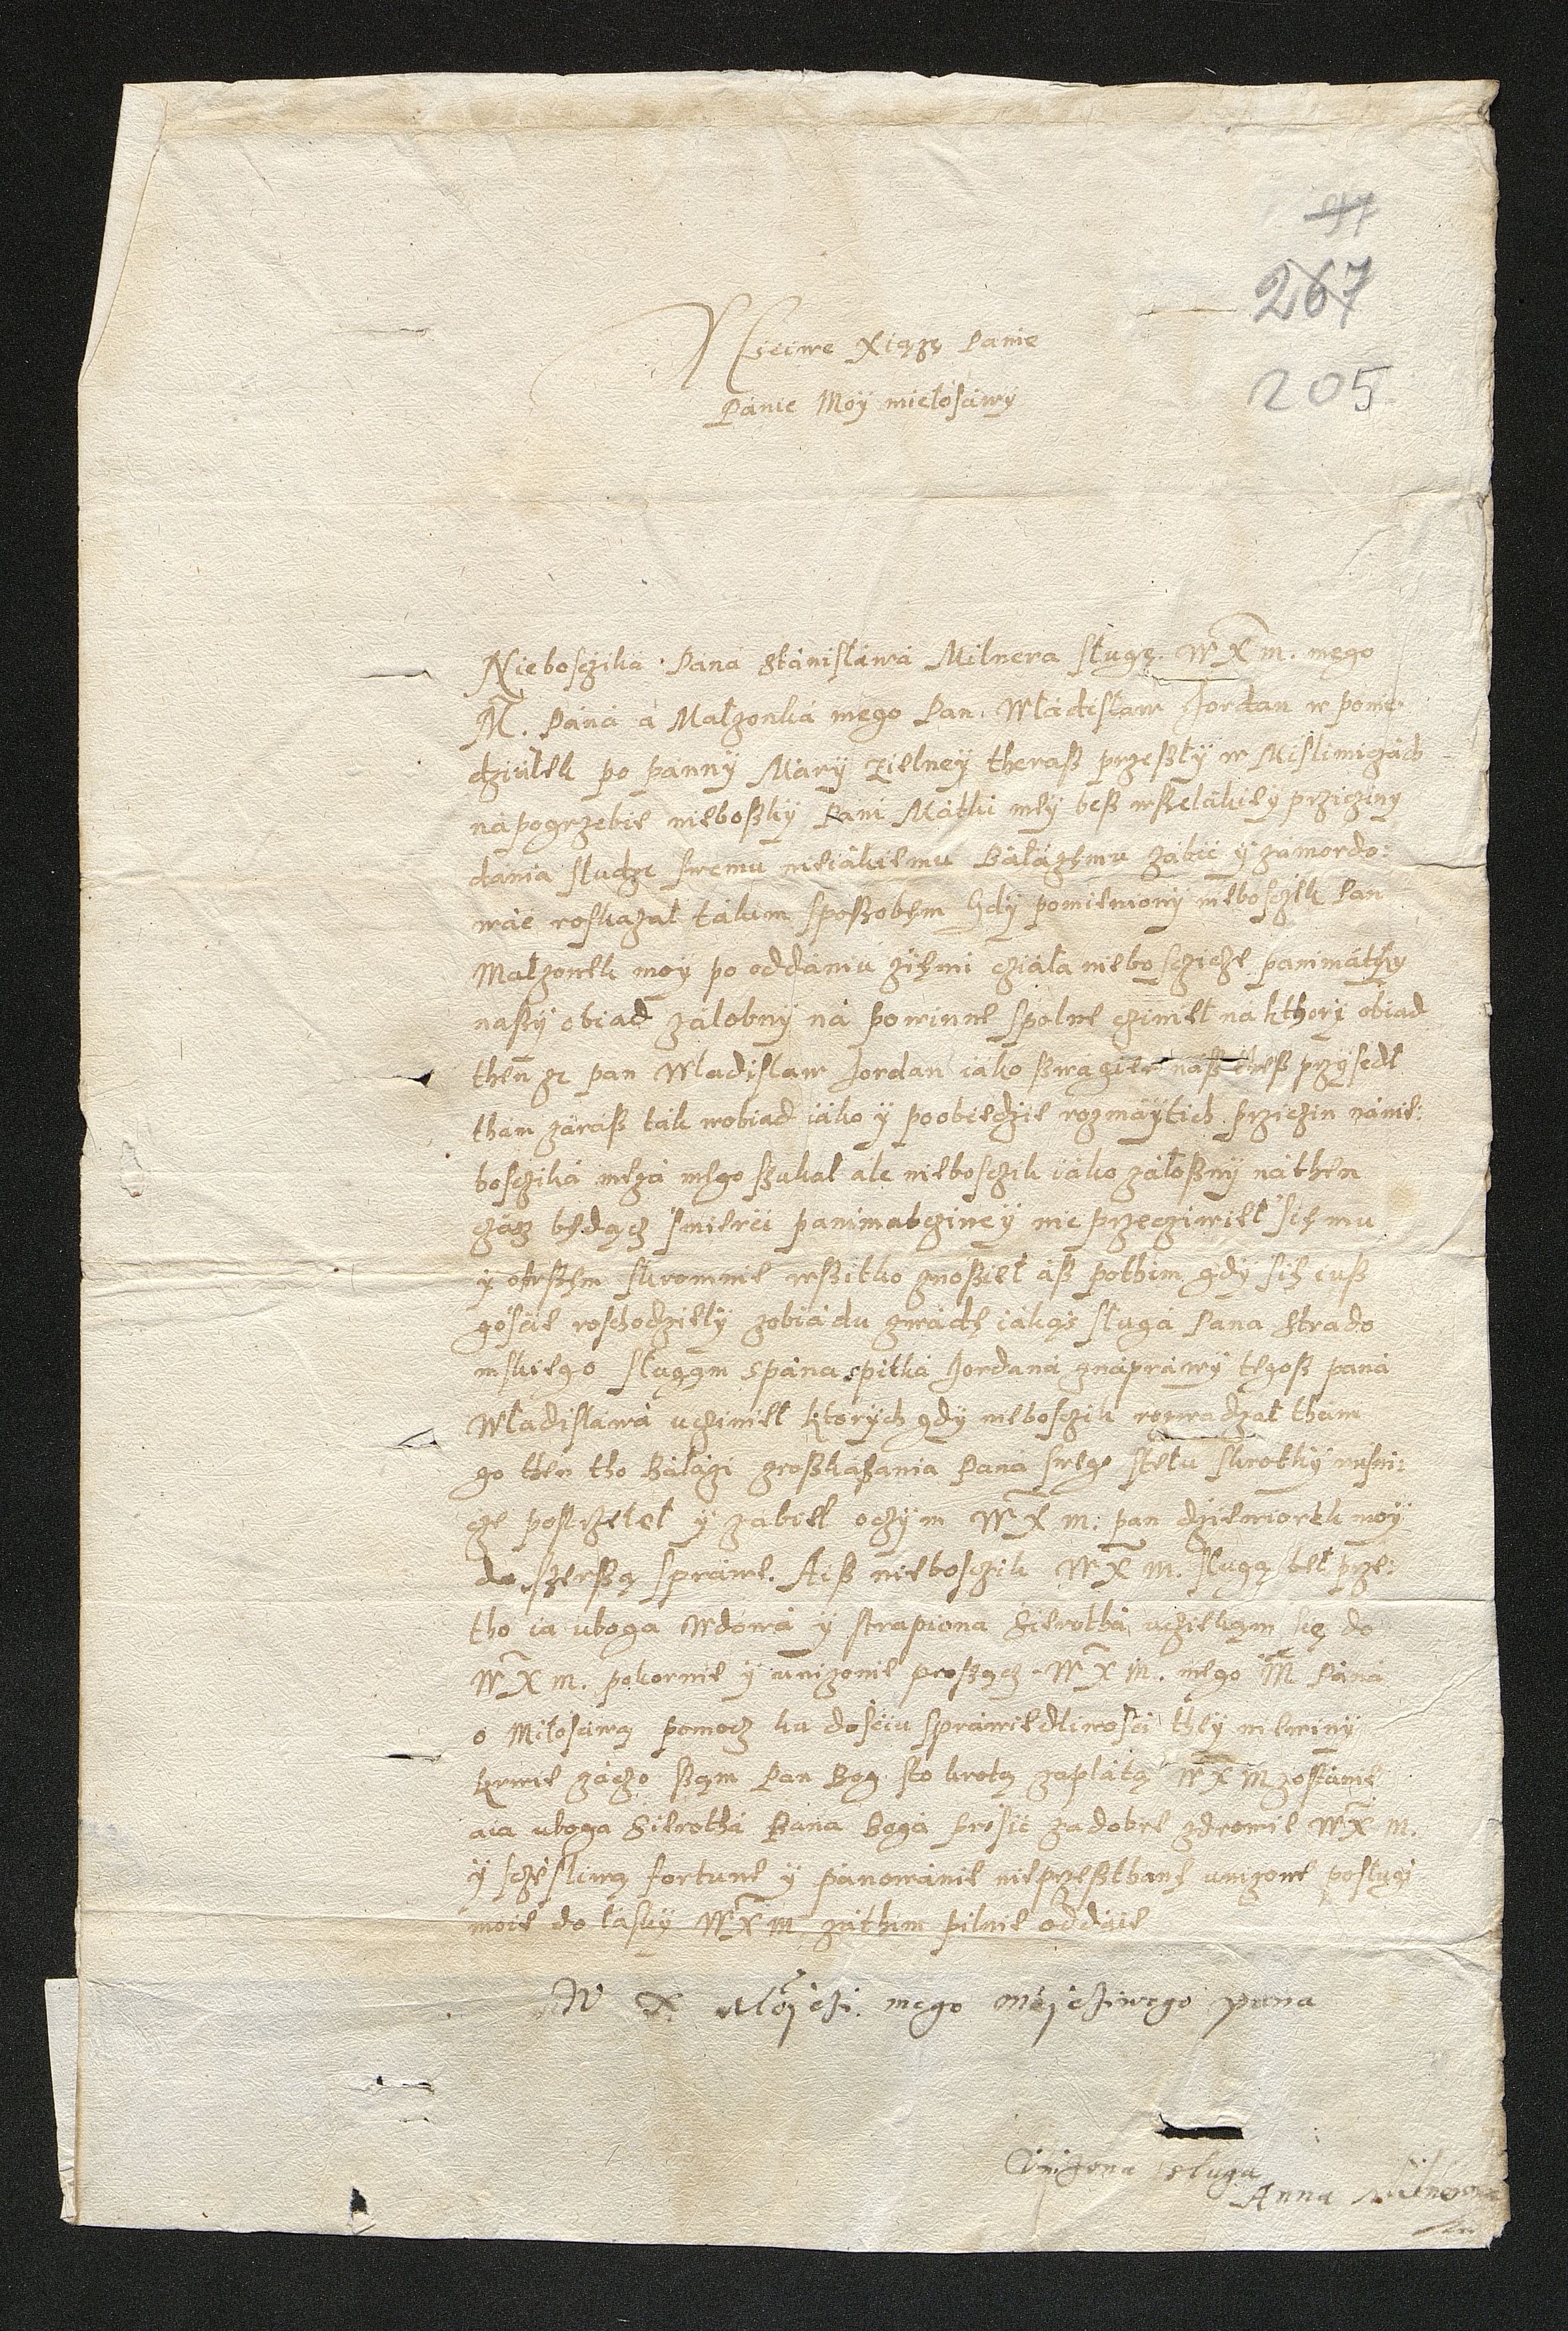 97
267
205
Msciwe Xiążę Panie
Panie Moÿ miełosciwÿ
Nieboſcżika Pana Stanisława Milnera sługę WXM. męgo
M. Pana a Małzonka mego Pan Władisław Jordan w ponie
dziułek po pannÿ Marÿ zielneÿ theraß przeßłÿ w Mislimiczach
na pogrzebie nieboßkÿ Pani Matki mÿ beß wßelakieÿ prziczinÿ
dania słudze swemu nieiakiemu Bałażęmu zabić ÿ zamordo:
wać roskazał takim sposzobęm Gdÿ pomienionÿ nieboscżik Pan
Małzonek moÿ po oddaniu zięmi cziała nieboscziche panimathkÿ
naßÿ obiad załobnÿ na powinne spolne cziniеł na kthorÿ obiad
then ze pan Władisław Jordan iako ßwagier naß theß przÿsedł
tham zaraß tak wobiad iako ÿ poobiedzie rozmaÿtich prziczin nanie:
boscżika męza mego szukał ale niebosczik iako załoßnÿ nathen
czasz będącz śmierci panimatczineÿ nic przecziwieł się mu
ÿ owßęm skromnie wßitko znosieł aß pothim gdÿ się iuß
gościе roschodziełÿ zobiadu zwadę iakąś sługa Pana Strado
mskiego sługąm spana spitka Jordana znaprawÿ tegoß pana
Władisława uczinieł ktorÿch gdÿ niebosczik rozwadzał tham
go then tho Bałażi zroßkazania Pana swego stełu skrotkÿ rusni:
cze postrzeleł ÿ zabieł oczÿm WXM. pan dziewiorek moÿ
da szerßą sprawe. Aiß niebosczik WXM. sługą beł prze:
tho ia uboga Wdowa ÿ strapiona Sierotha ucziekąm się do
WXM. pokornie ÿ unizonie proßącz WXM. mego M Pana
o Miłosciwą pomocz ku dosciu sprawiedliwosci theÿ niewinÿ
krwie zaczo sząm Pan Bog sto krotą zapłatą WXM zostanie
aia uboga Sierotha Pana Boga prosić za dobre zdrowie WXM.
ÿ scżęsliwą fortune ÿ panowanie nieprzeßthanę unizone posługi
moie do łaskÿ WXM zathim pilnie oddaie
W X Mosczi mego mosciwego pana
Uniżona sługa
Anna Milnerowa